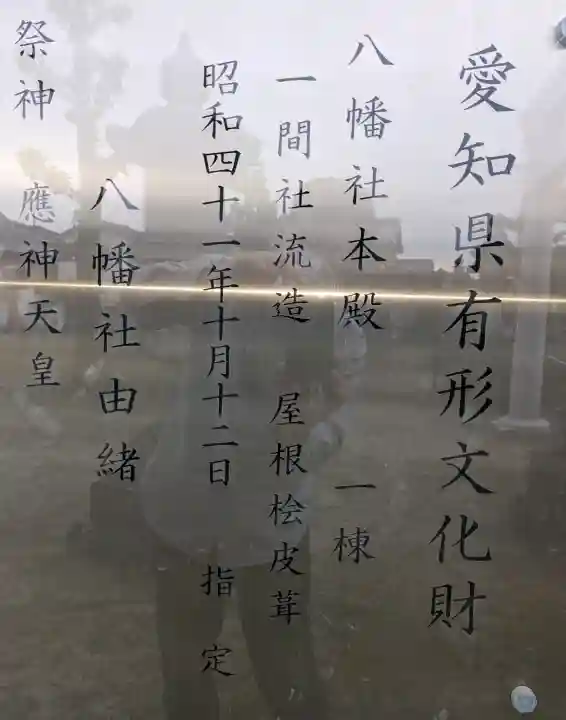 愛知県有形文化財
八幡社本殿　一棟
一間社流造　屋根桧皮葺
昭和四十一年十月十二日　指定
八幡社由緒
祭神　應神天皇